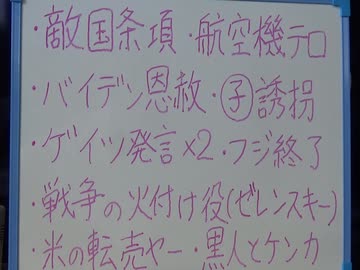 ・敵国条項・航空機テロ
・バイデン恩赦・子誘拐
・ゲイツ発言×2・フジ終了
・戦争の火付け役(ゼレンスキー)
・米の転売ヤー・黒人とケンカ